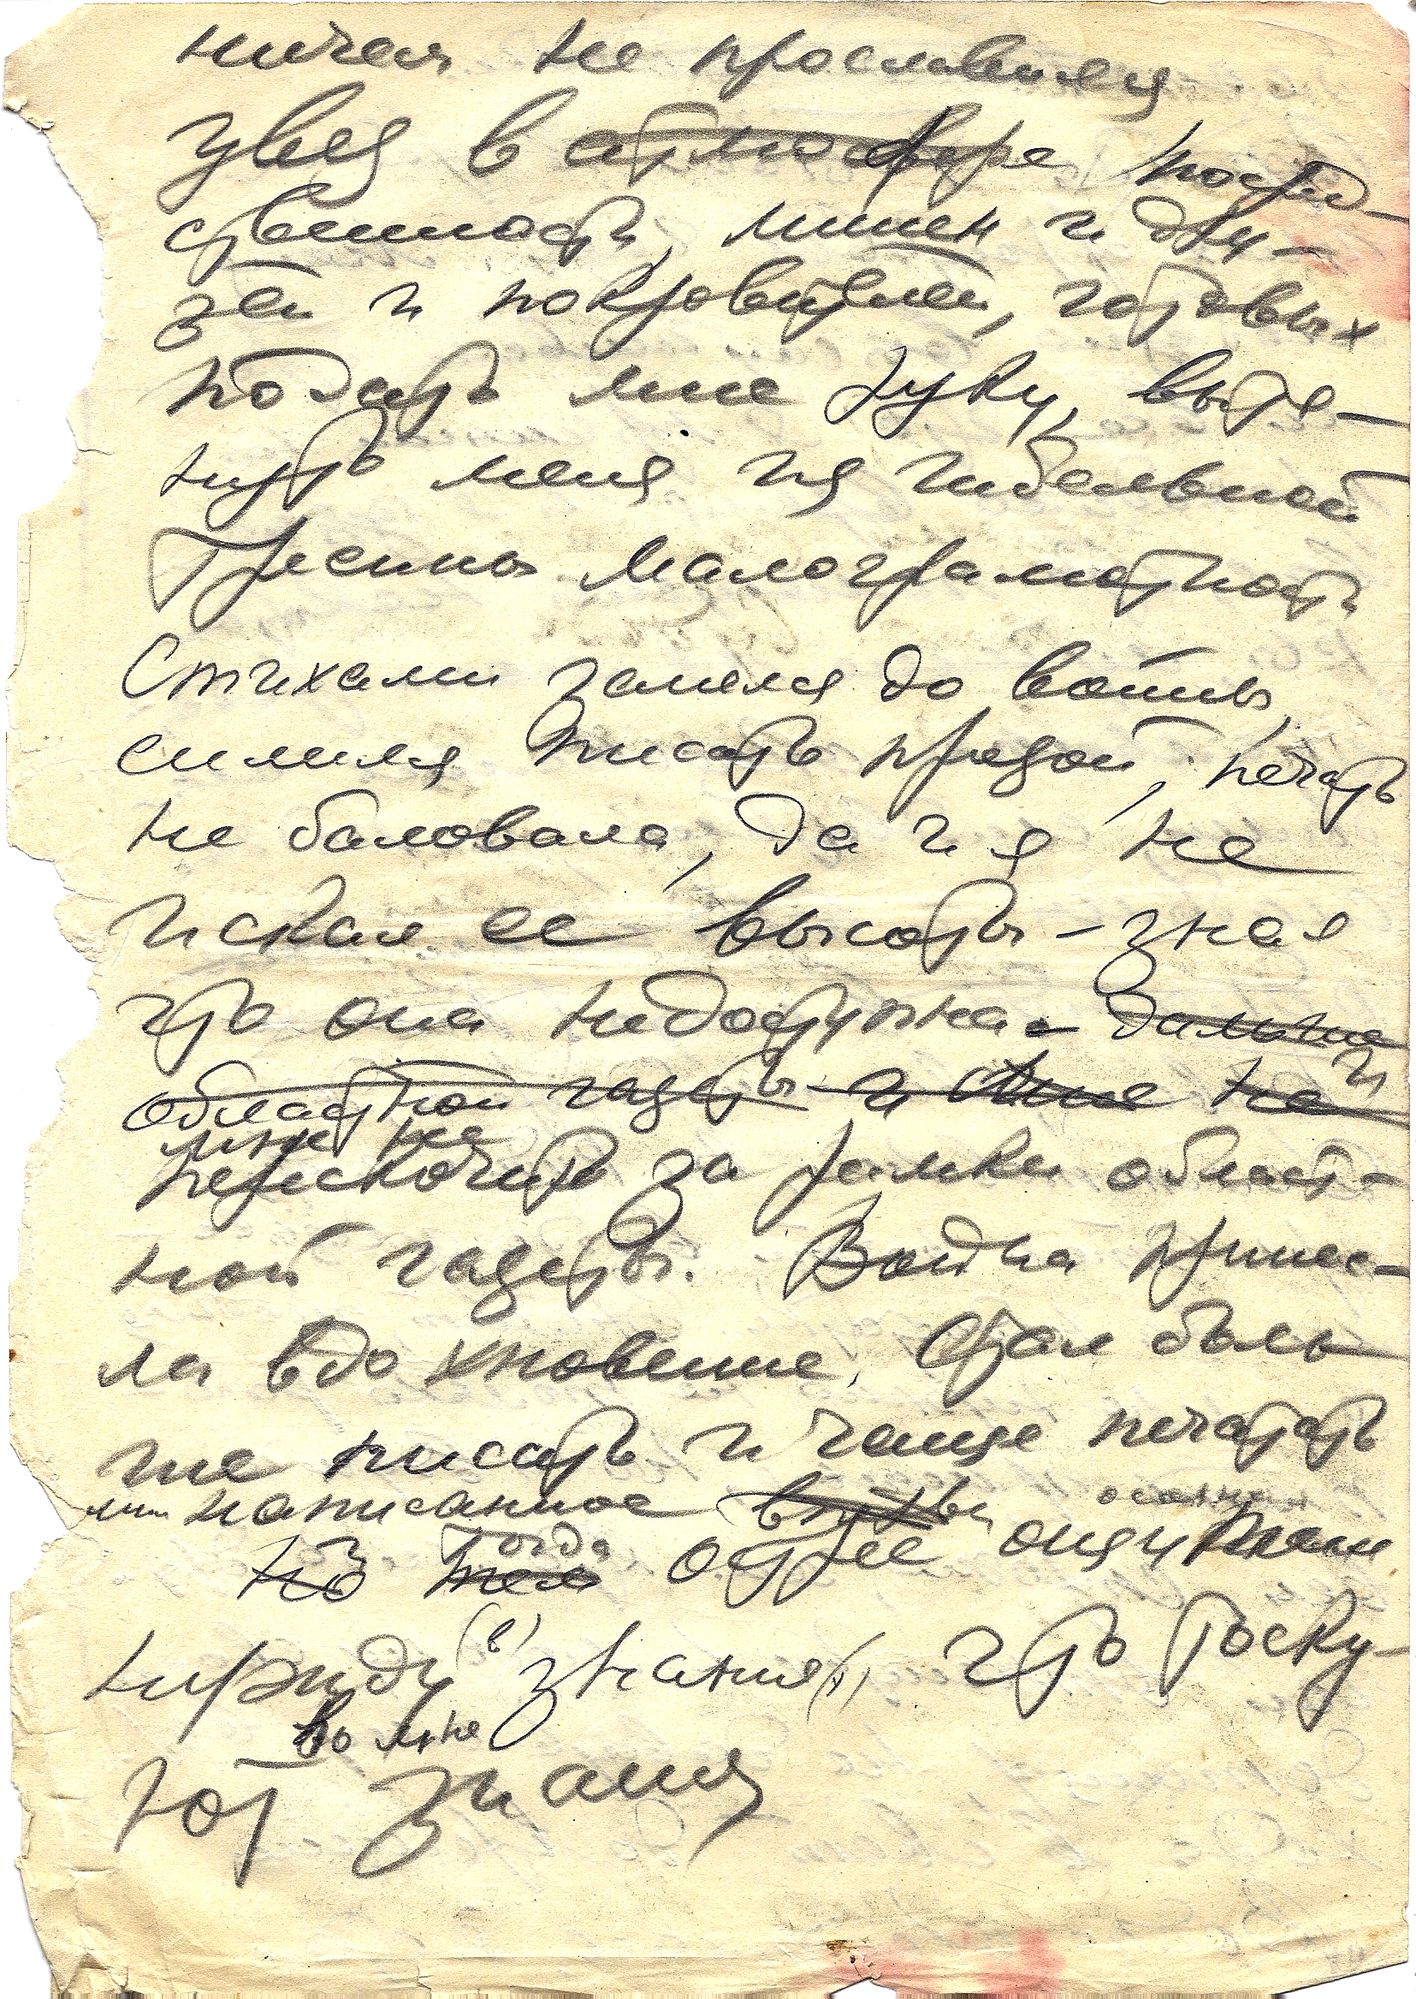 ничем не прославился
увяз в атмосфере посред-
ственности, лишен и дру-
зей и покровителей, готовых
подать мне руку, вытя-
нуть меня из гибельной
трясины малограмотности
Стихами занялся до войны,
силился писать прозой, печать
не баловала, да и я не
искал ее высоты – зная
что она недоступна – дальше
областной газеты и мне не и
мне не
перескочить за рамки област-
ной газеты. Война принес-
ла вдохновение, стал боль
ше писать и чаще печатать
написанное
но тогда острее ощущали
нужду (в) знания(х), что тоску-
во мне
ют знания